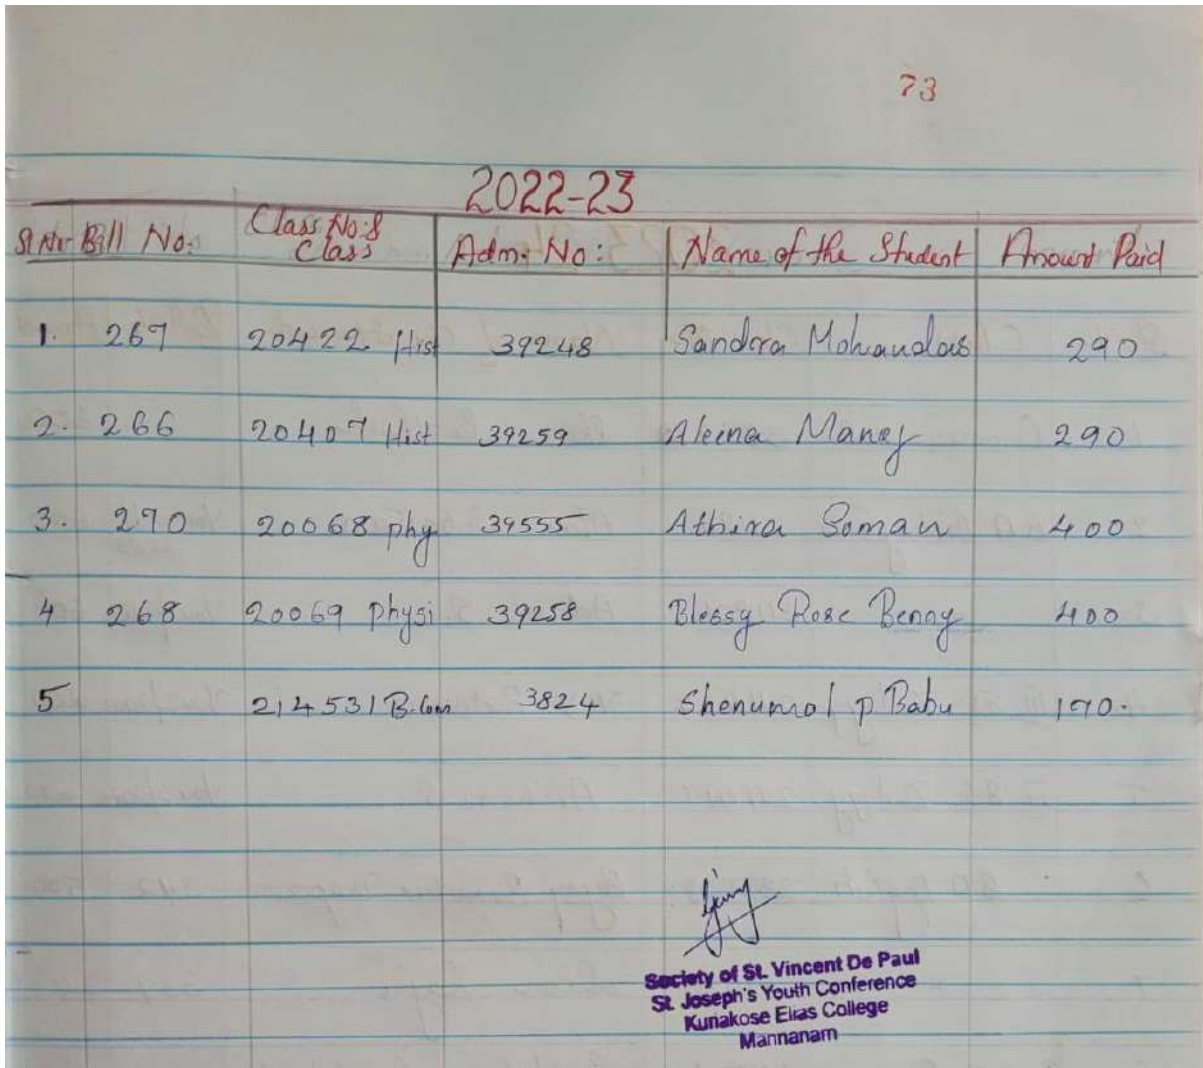 73
2022-23
Sl No. Bill No: Class No: & Class Adm. No: Name of the Student Amount Paid
1. 267 20422 Hist 39248 Sandra Mohandas 290
2. 266 20407 Hist 39259 Aleena Manoj 290
3. 270 20068 phy 39555 Athira Soman 400
4 268 20069 physi 39258 Blessy Rose Benny 400
5 214531 B.Com 3824 Shenumol p Babu 170.
Society of St. Vincent De Paul
St. Joseph's Youth Conference
Kuriakose Elias College
Mannanam